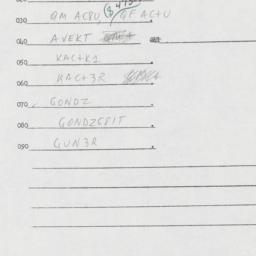 030 QM AC8U, QF AC+U
040 AVEKT
050 KAC+K1
060 KAC+3R
070 GONDZ
080 GONDZGPIT
090 GUN3R